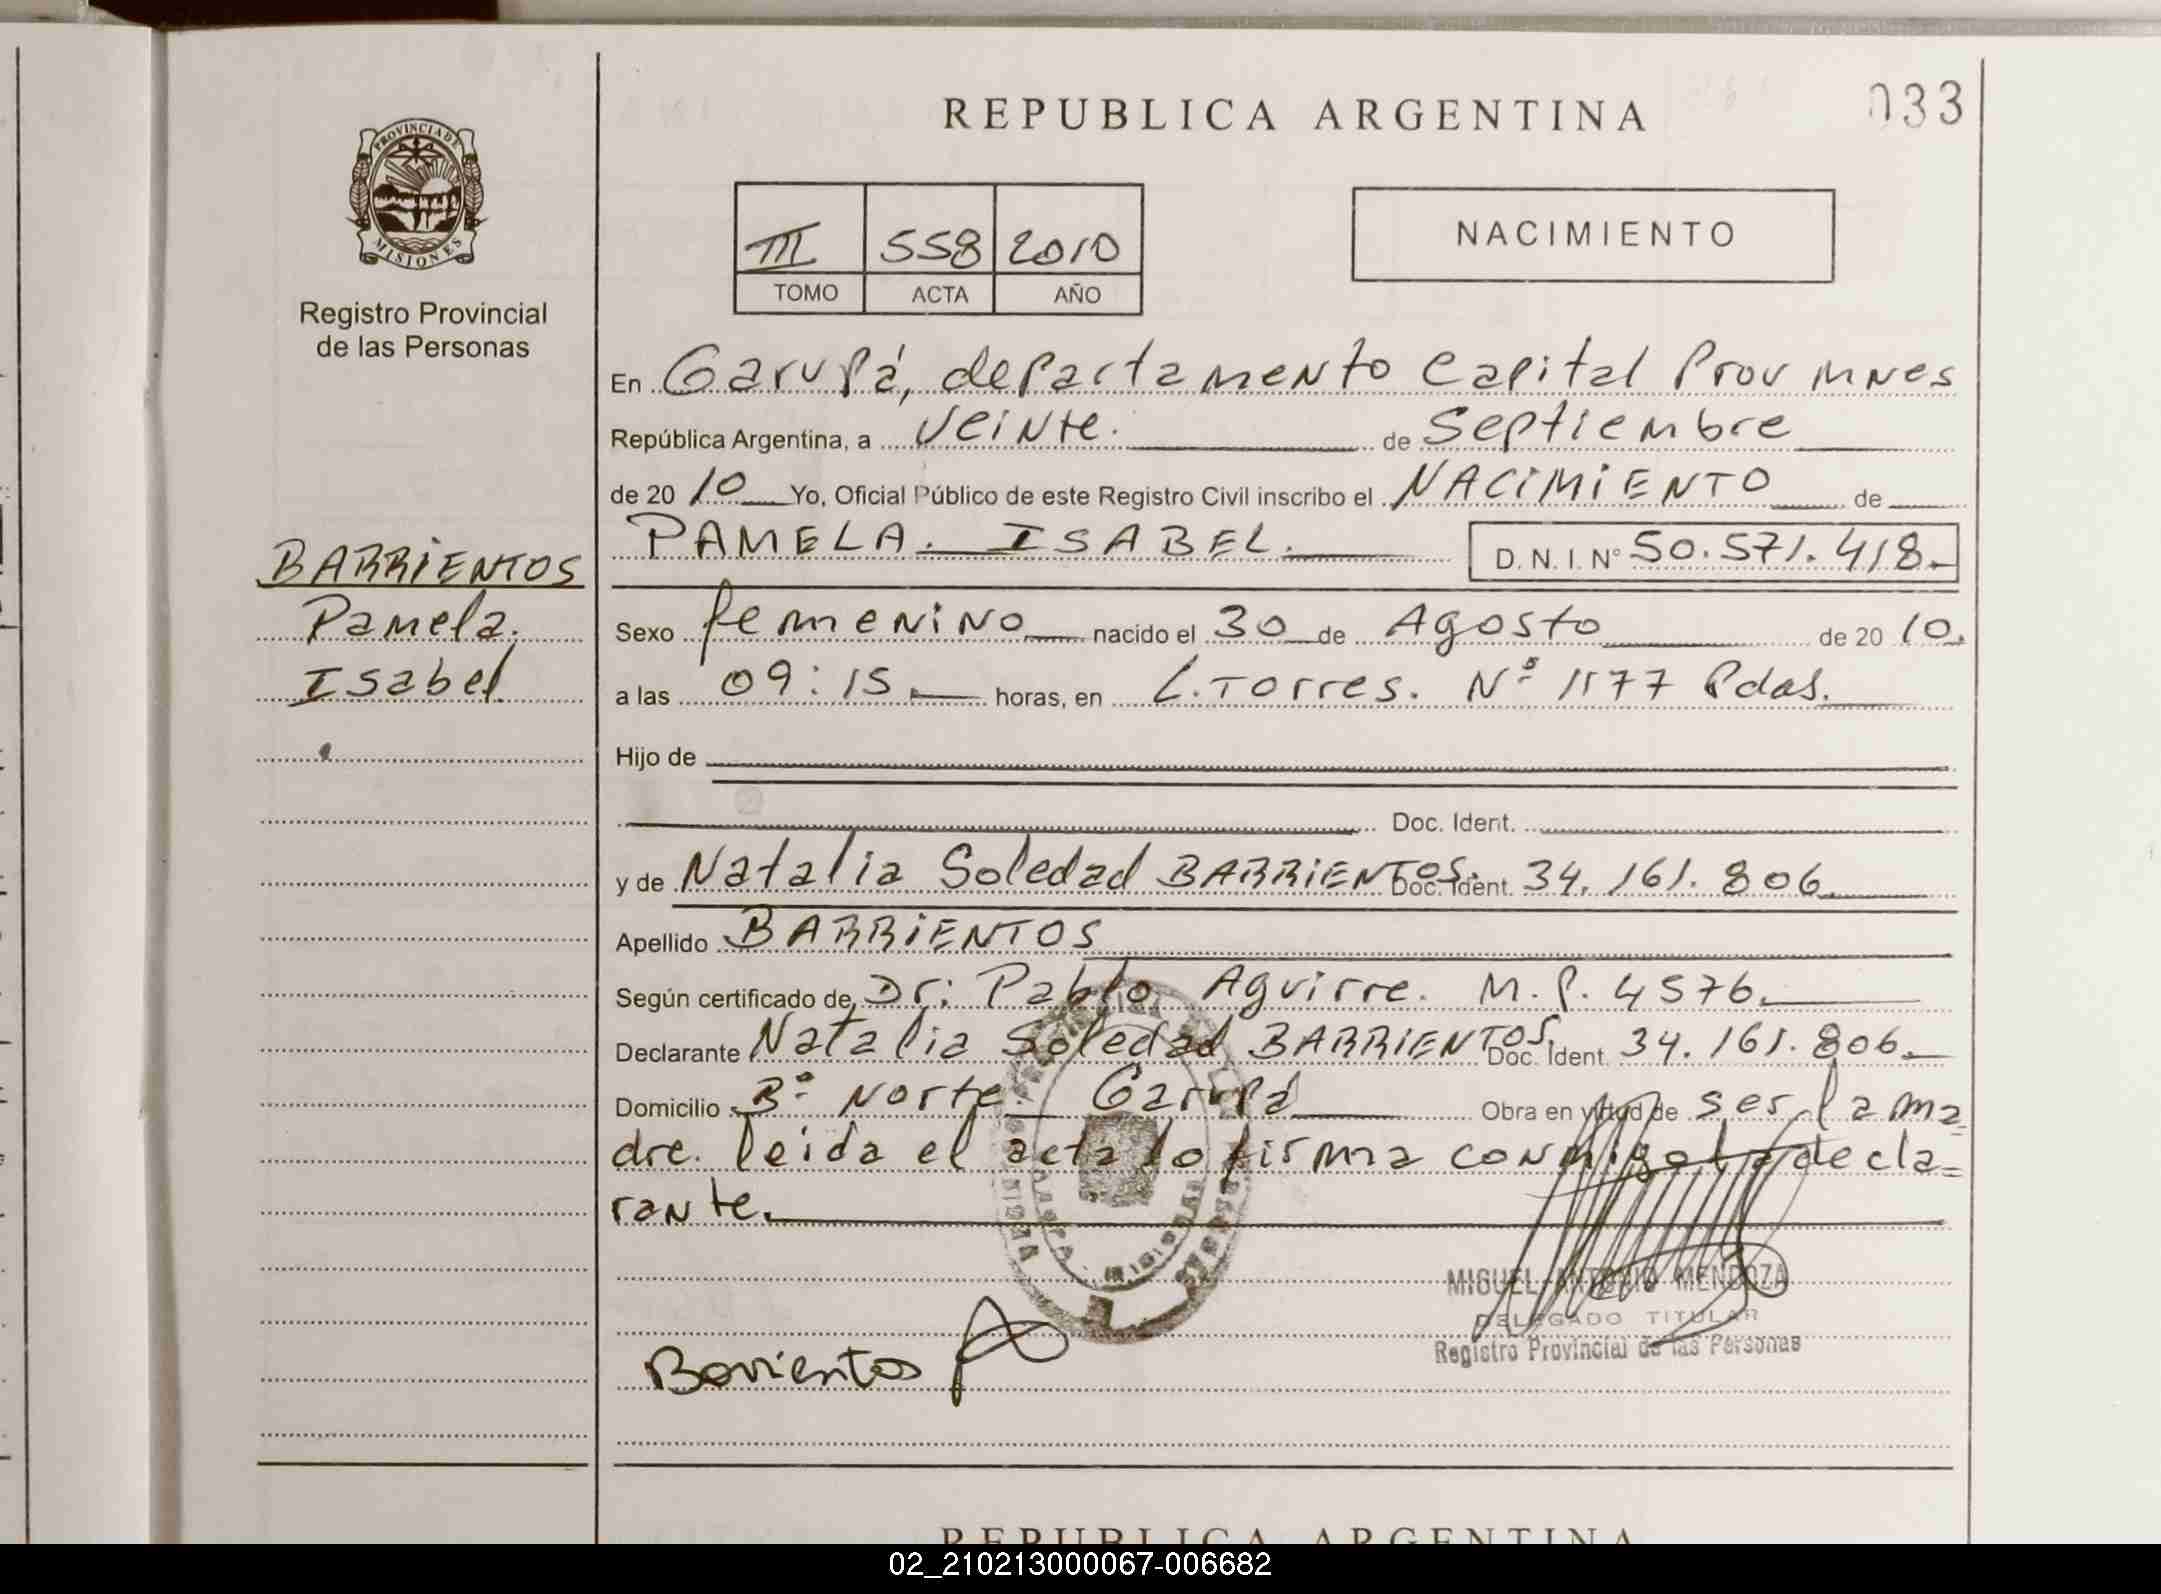 REPUBLICA ARGENTINA
033
PROVINCIA DE
MISIONES
Registro Provincial
de las Personas
III 558 2010
TOMO ACTA AÑO
NACIMIENTO
En Garupá, departamento Capital Prov Mnes
República Argentina, a veinte. de Septiembre
de 2010 Yo, Oficial Público de este Registro Civil inscribo el NACIMIENTO de
PAMELA. ISABEL. D. N. I. N° 50.571.418.
BARRIENTOS
Pamela.
Isabel
Sexo femenino nacido el 30 de Agosto de 2010.
a las 09:15 horas, en L. Torres. Nº 1177 Pdas.
Hijo de
Doc. Ident.
y de Natalia Soledad BARRIENTOS. Doc. Ident. 34.161.806.
Apellido BARRIENTOS
Según certificado de Dr: Pablo Aguirre. M.P. 4576.
Declarante Natalia Soledad BARRIENTOS. Doc. Ident. 34.161.806.
Domicilio Bº Norte Garupá Obra en virtud de ser la ma
dre. leida el acta lo firma conmigo la decla=
rante.
MIGUEL ANTONIO MENDOZA
DELEGADO TITULAR
Registro Provincial de las Personas
Barrientos
REPUBLICA ARGENTINA
02_210213000067-006682